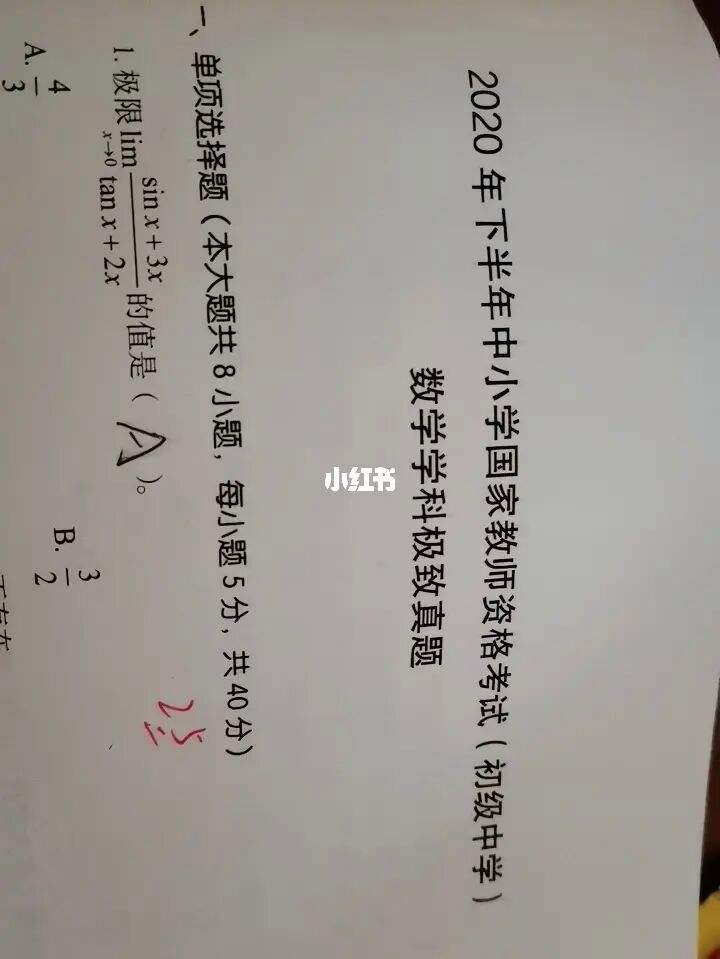 2020 年下半年中小学国家教师资格考试（初级中学）
数学学科极致真题
一、单项选择题（本大题共 8 小题，每小题 5 分，共 40 分）
25
1. 极限 lim x→0 (sin x + 3x)/(tan x + 2x) 的值是（ A ）。
A. 4/3 B. 3/2
不存在
小红书